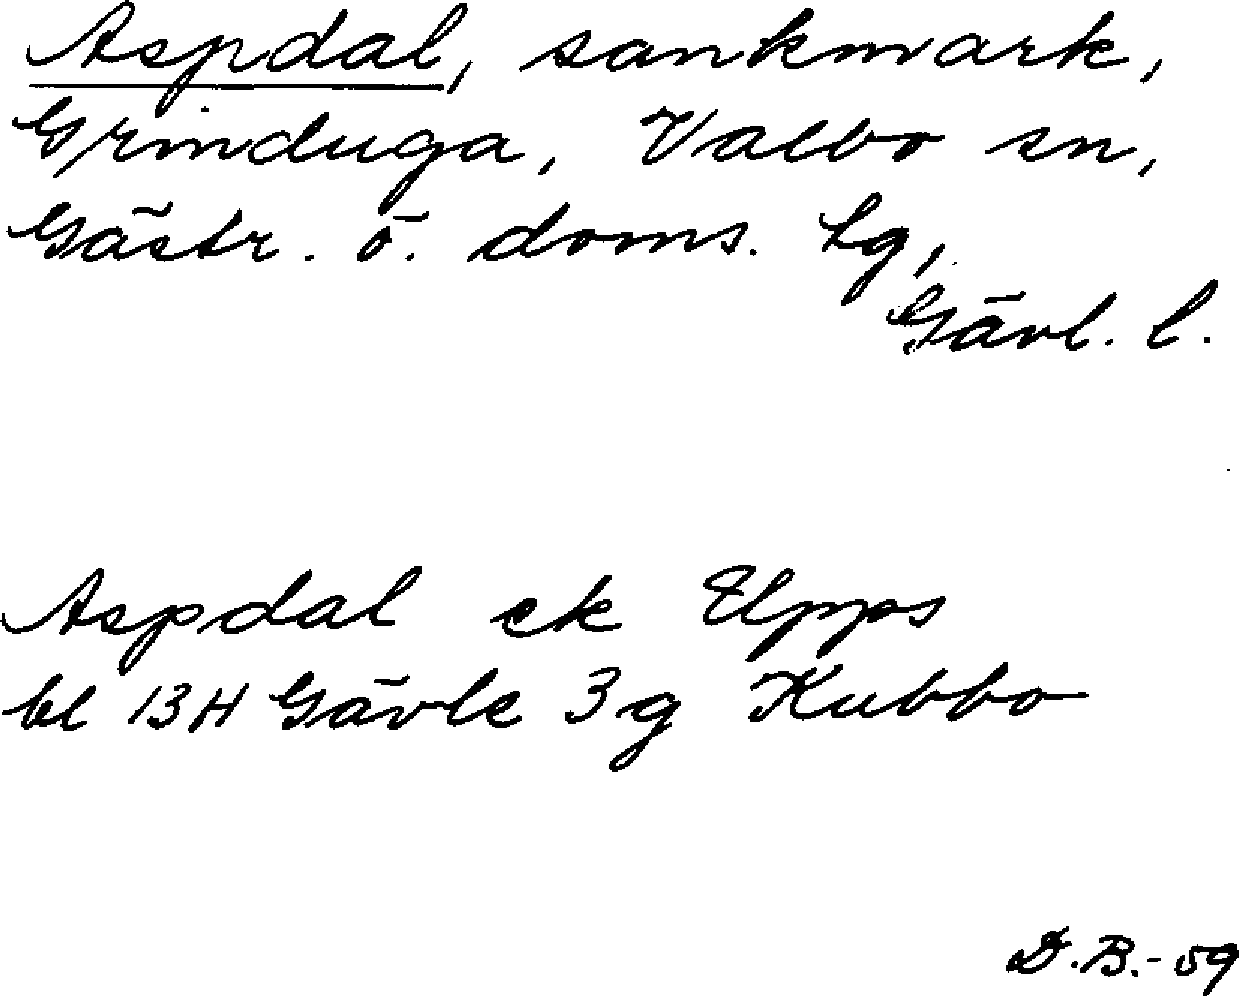 Aspdal, sankmark,
Grinduga, Valbo sn,
Gästr. ö. doms. tg,
Gävl. l.
Aspdal ek Upps
bl 13H Gävle 3g Kubbo
D.B.-59